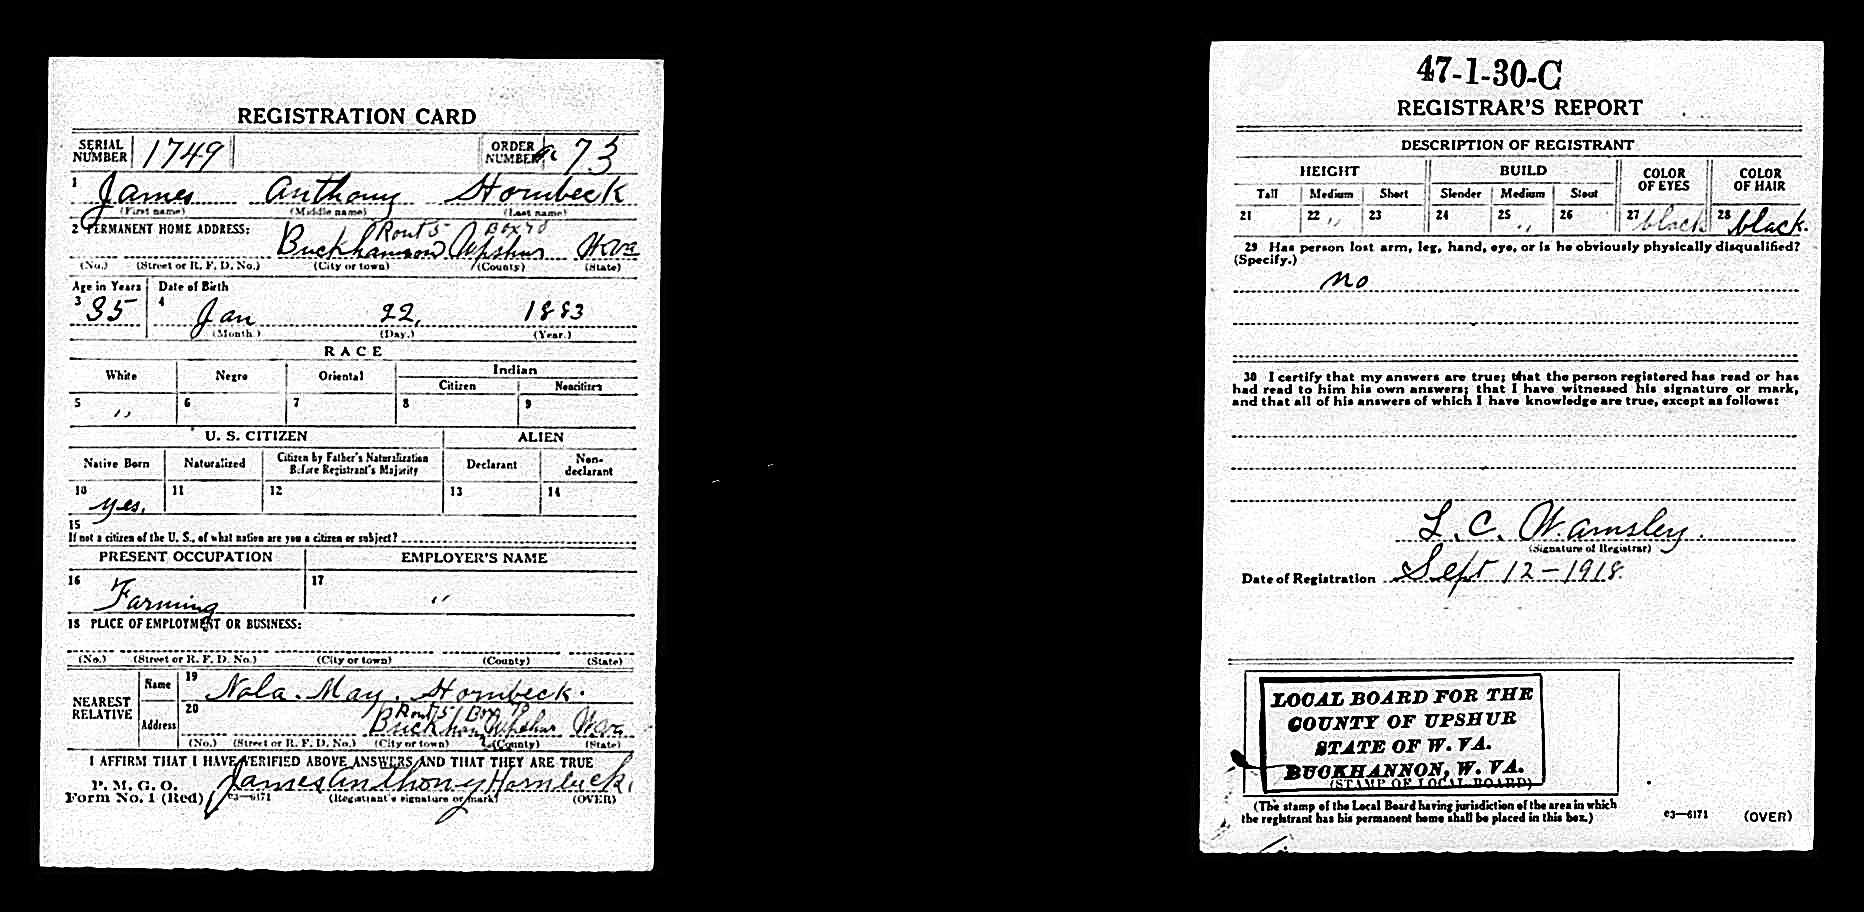 REGISTRATION CARD
SERIAL NUMBER 1749 ORDER NUMBER a 73
1 James Anthony Hornbeck
(First name) (Middle name) (Last name)
2 PERMANENT HOME ADDRESS: Rout 5 Box 90
Buckhannon Upshur W.Va
(No.) (Street or R. F. D. No.) (City or town) (County) (State)
Age in Years Date of Birth
3 35 4 Jan 22, 1883
(Month.) (Day.) (Year.)
RACE
White Negro Oriental Indian
Citizen Noncitizen
5 ,, 6 7 8 9
U. S. CITIZEN ALIEN
Native Born Naturalized Citizen by Father's Naturalization Before Registrant's Majority Declarant Non-declarant
10 yes. 11 12 13 14
15
If not a citizen of the U. S., of what nation are you a citizen or subject?
PRESENT OCCUPATION EMPLOYER'S NAME
16 Farming 17 ,,
18 PLACE OF EMPLOYMENT OR BUSINESS:
(No.) (Street or R. F. D. No.) (City or town) (County) (State)
NEAREST RELATIVE Name 19 Nola. May. Hornbeck.
Address 20 Rout 5 Box 90
Buckhann Upshur W.Va
(No.) (Street or R. F. D. No.) (City or town) (County) (State)
I AFFIRM THAT I HAVE VERIFIED ABOVE ANSWERS AND THAT THEY ARE TRUE
P. M. G. O.
Form No. 1 (Red) 03—6171 James Anthony Hornbeck
(Registrant's signature or mark) (OVER)
47-1-30-C
REGISTRAR'S REPORT
DESCRIPTION OF REGISTRANT
HEIGHT BUILD COLOR OF EYES COLOR OF HAIR
Tall Medium Short Slender Medium Stout
21 22 ,, 23 24 25 ,, 26 27 black 28 black.
29 Has person lost arm, leg, hand, eye, or is he obviously physically disqualified?
(Specify.)
no
30 I certify that my answers are true; that the person registered has read or has
had read to him his own answers; that I have witnessed his signature or mark,
and that all of his answers of which I have knowledge are true, except as follows:
L. C. Wamsley.
(Signature of Registrar)
Date of Registration Sept 12-1918.
LOCAL BOARD FOR THE
COUNTY OF UPSHUR
STATE OF W. VA.
BUCKHANNON, W. VA.
(STAMP OF LOCAL BOARD)
(The stamp of the Local Board having jurisdiction of the area in which
the registrant has his permanent home shall be placed in this box.)
03—6171 (OVER)